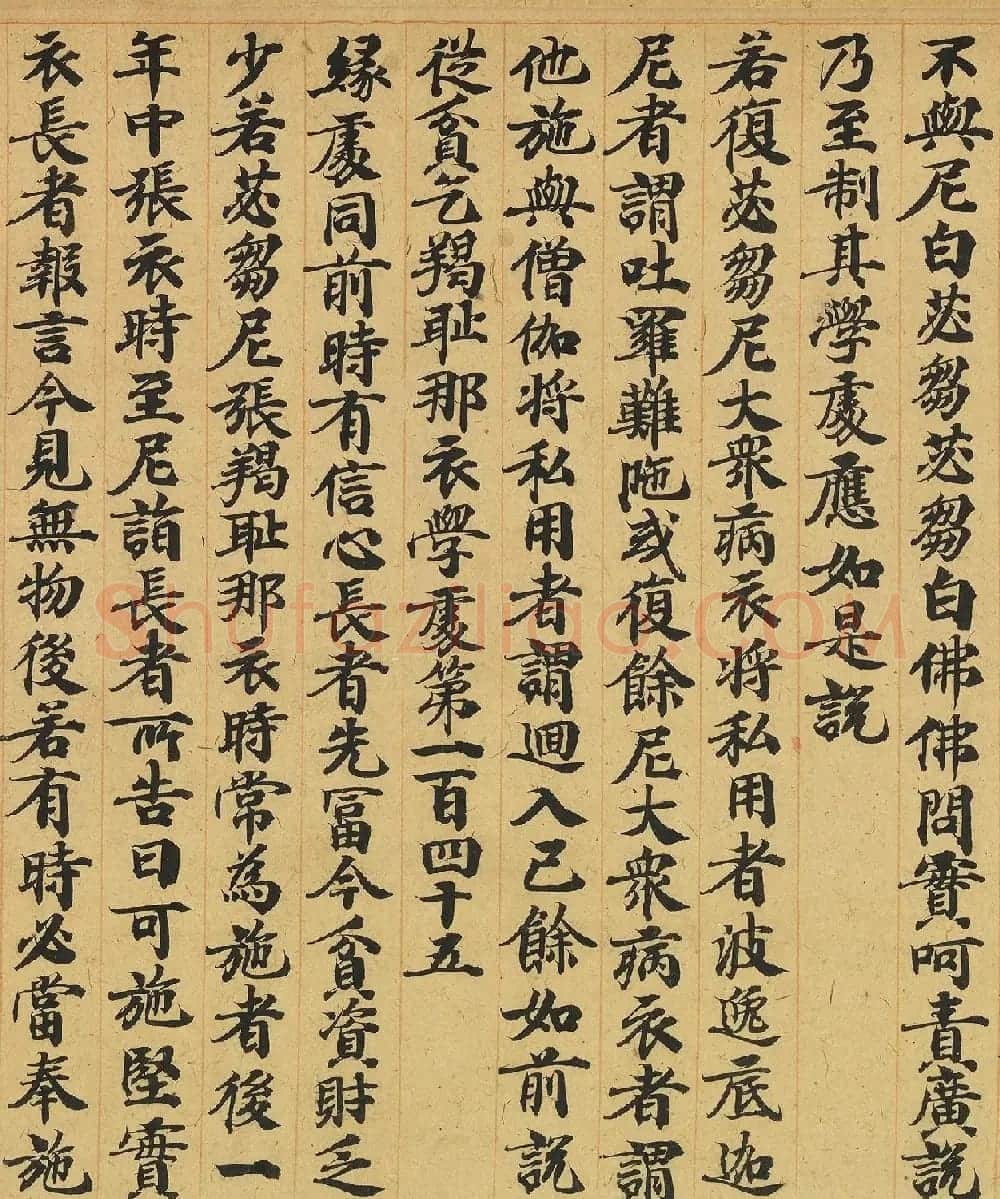 不與尼白苾芻苾芻白佛佛問實呵責廣說
乃至制其學處應如是說
若復苾芻尼大衆病衣將私用者波逸底迦
尼者謂吐羅難陁或復餘尼大衆病衣者謂
他施與僧伽將私用者謂迴入己餘如前說
從貧乞羯耻那衣學處第一百四十五
緣處同前時有信心長者先冨今貧資財乏
少若苾芻尼張羯耻那衣時常為施者後一
年中張衣時至尼詣長者所告曰可施堅實
衣長者報言今見無物後若有時必當奉施
Shufaziliao.COM